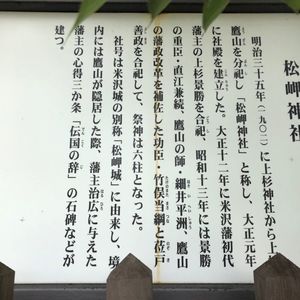 松岬神社
明治三十五年(一九〇二)に上杉神社から上杉
鷹山を分祀し「松岬神社」と称し、大正元年
に社殿を建立した。大正十二年に米沢藩初代
藩主の上杉景勝を合祀、昭和十三年には景勝
の重臣・直江兼続、鷹山の師・細井平洲、鷹山
の藩政改革を補佐した功臣・竹俣当綱と莅戸
善政を合祀して、祭神は六柱となった。
社号は米沢城の別称「松岬城」に由来し、境
内には鷹山が隠居した際、藩主治広に与えた
藩主の心得三か条「伝国の辞」の石碑などが
建つ。